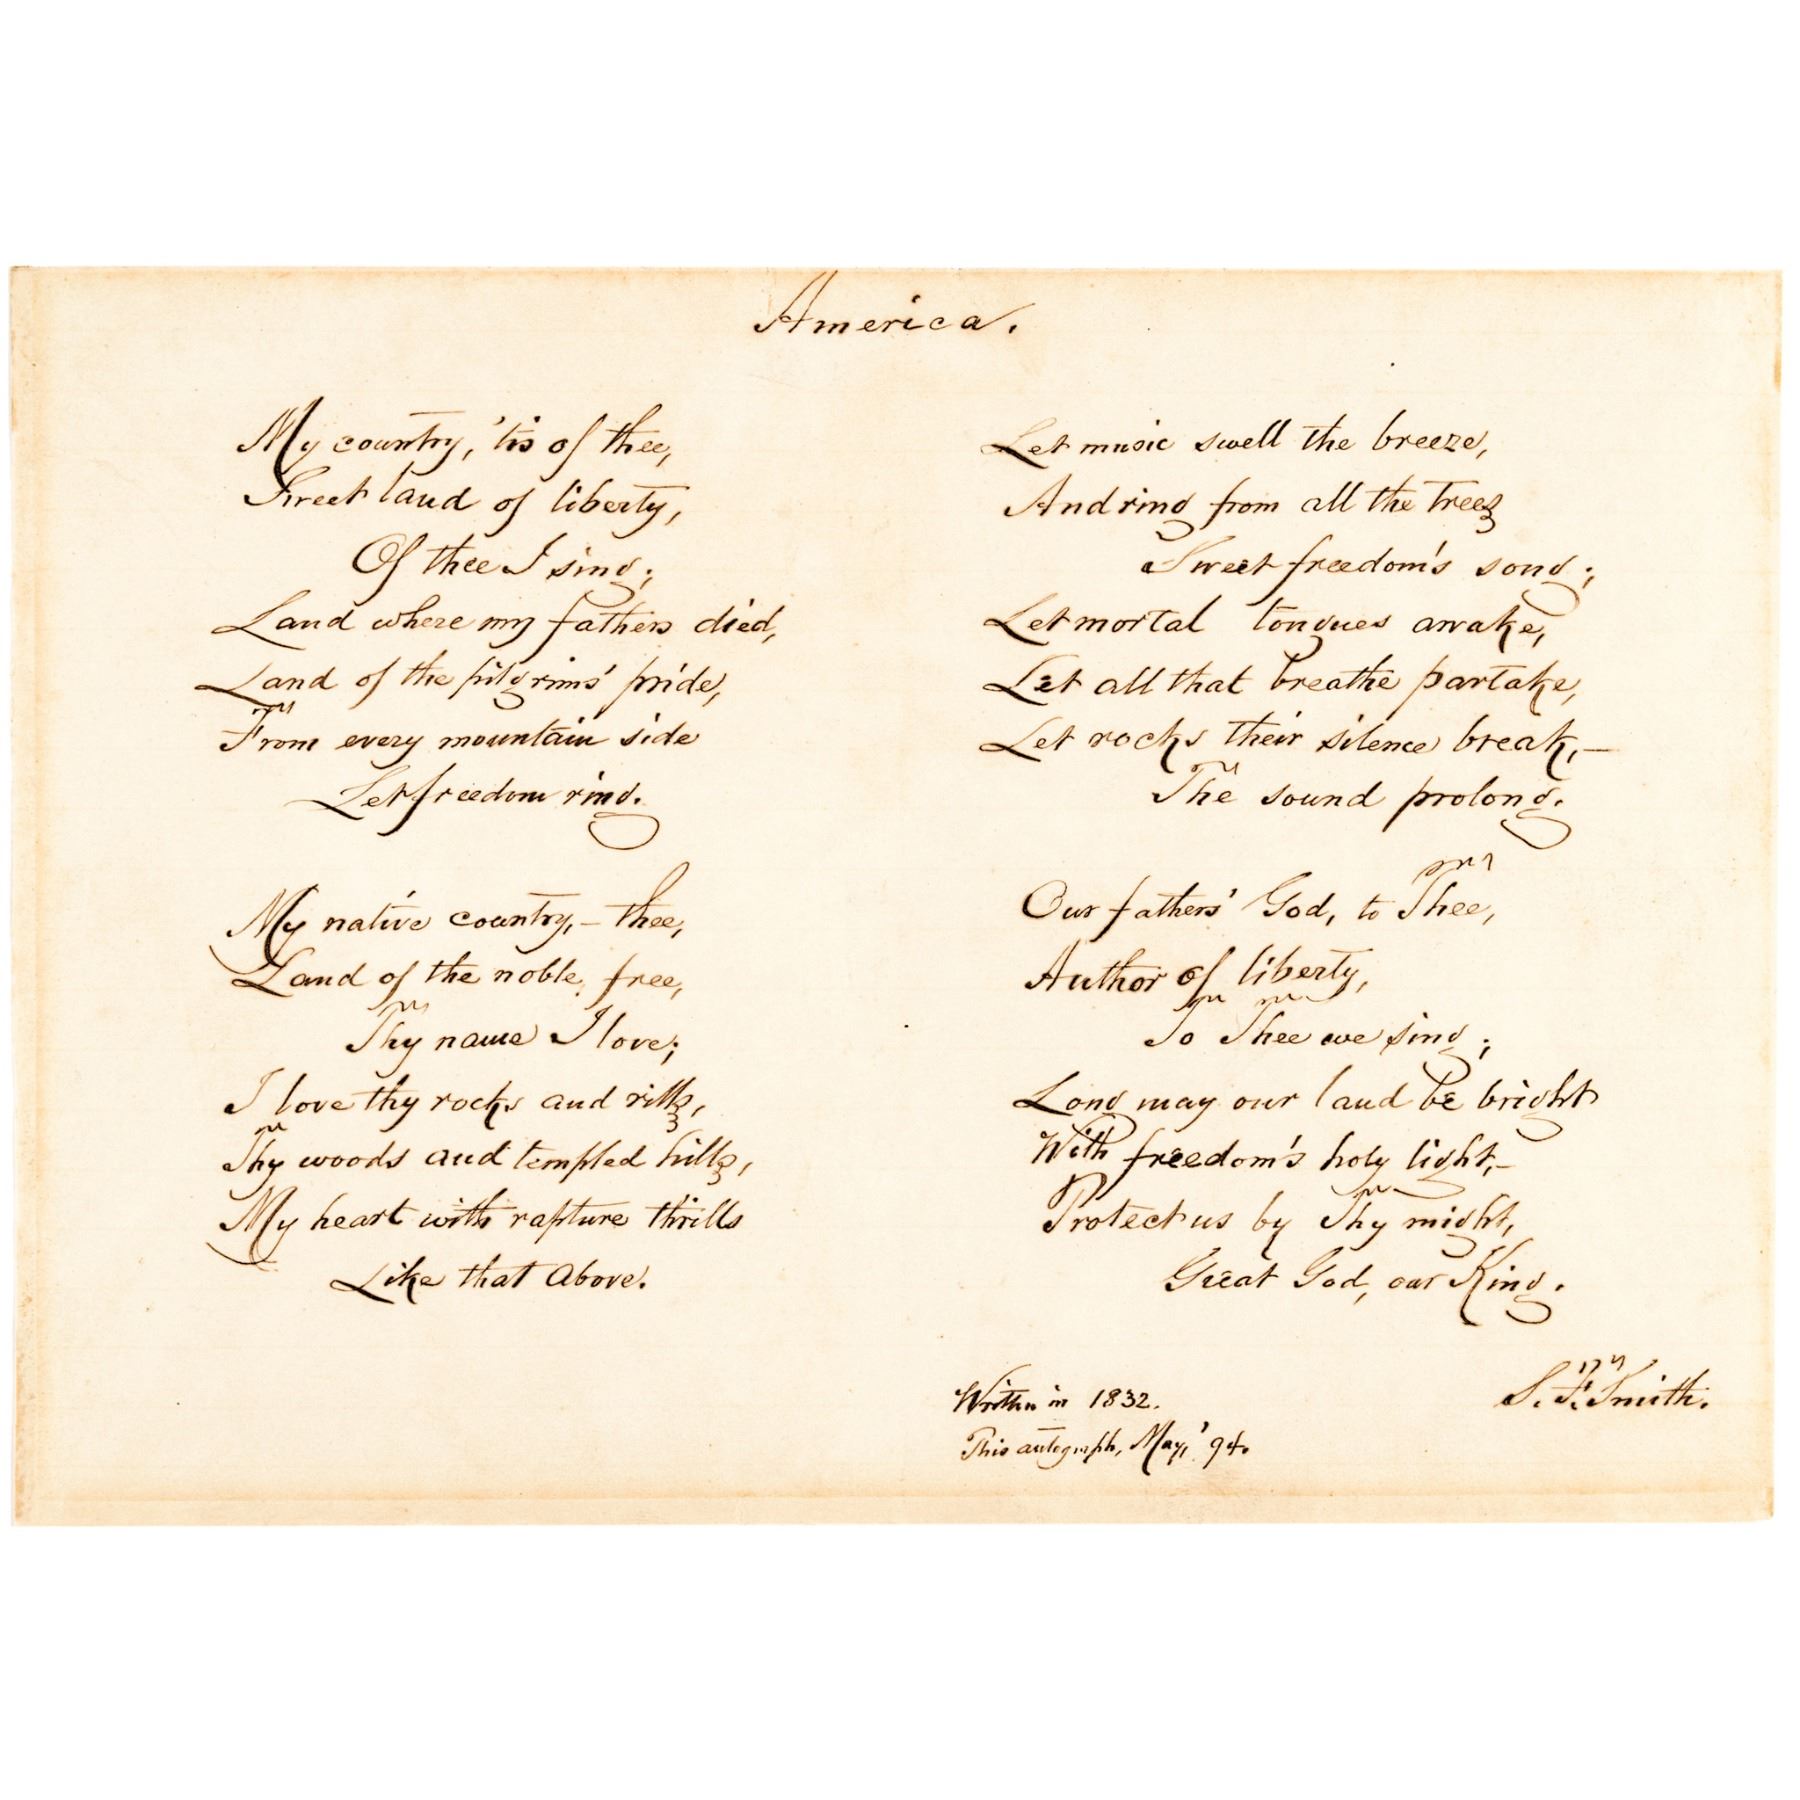 America.
My country, 'tis of thee,
Sweet land of liberty,
Of thee I sing;
Land where my fathers died,
Land of the pilgrims' pride,
From every mountain side
Let freedom ring.
My native country, – thee,
Land of the noble, free,
Thy name I love;
I love thy rocks and rills,
Thy woods and templed hills,
My heart with rapture thrills
Like that above.
Let music swell the breeze,
And ring from all the trees
Sweet freedom's song;
Let mortal tongues awake,
Let all that breathe partake,
Let rocks their silence break, –
The sound prolong.
Our fathers' God, to Thee,
Author of liberty,
To Thee we sing;
Long may our land be bright
With freedom's holy light, –
Protect us by Thy might,
Great God, our King.
S. F. Smith.
Written in 1832.
This autograph, May, '94.